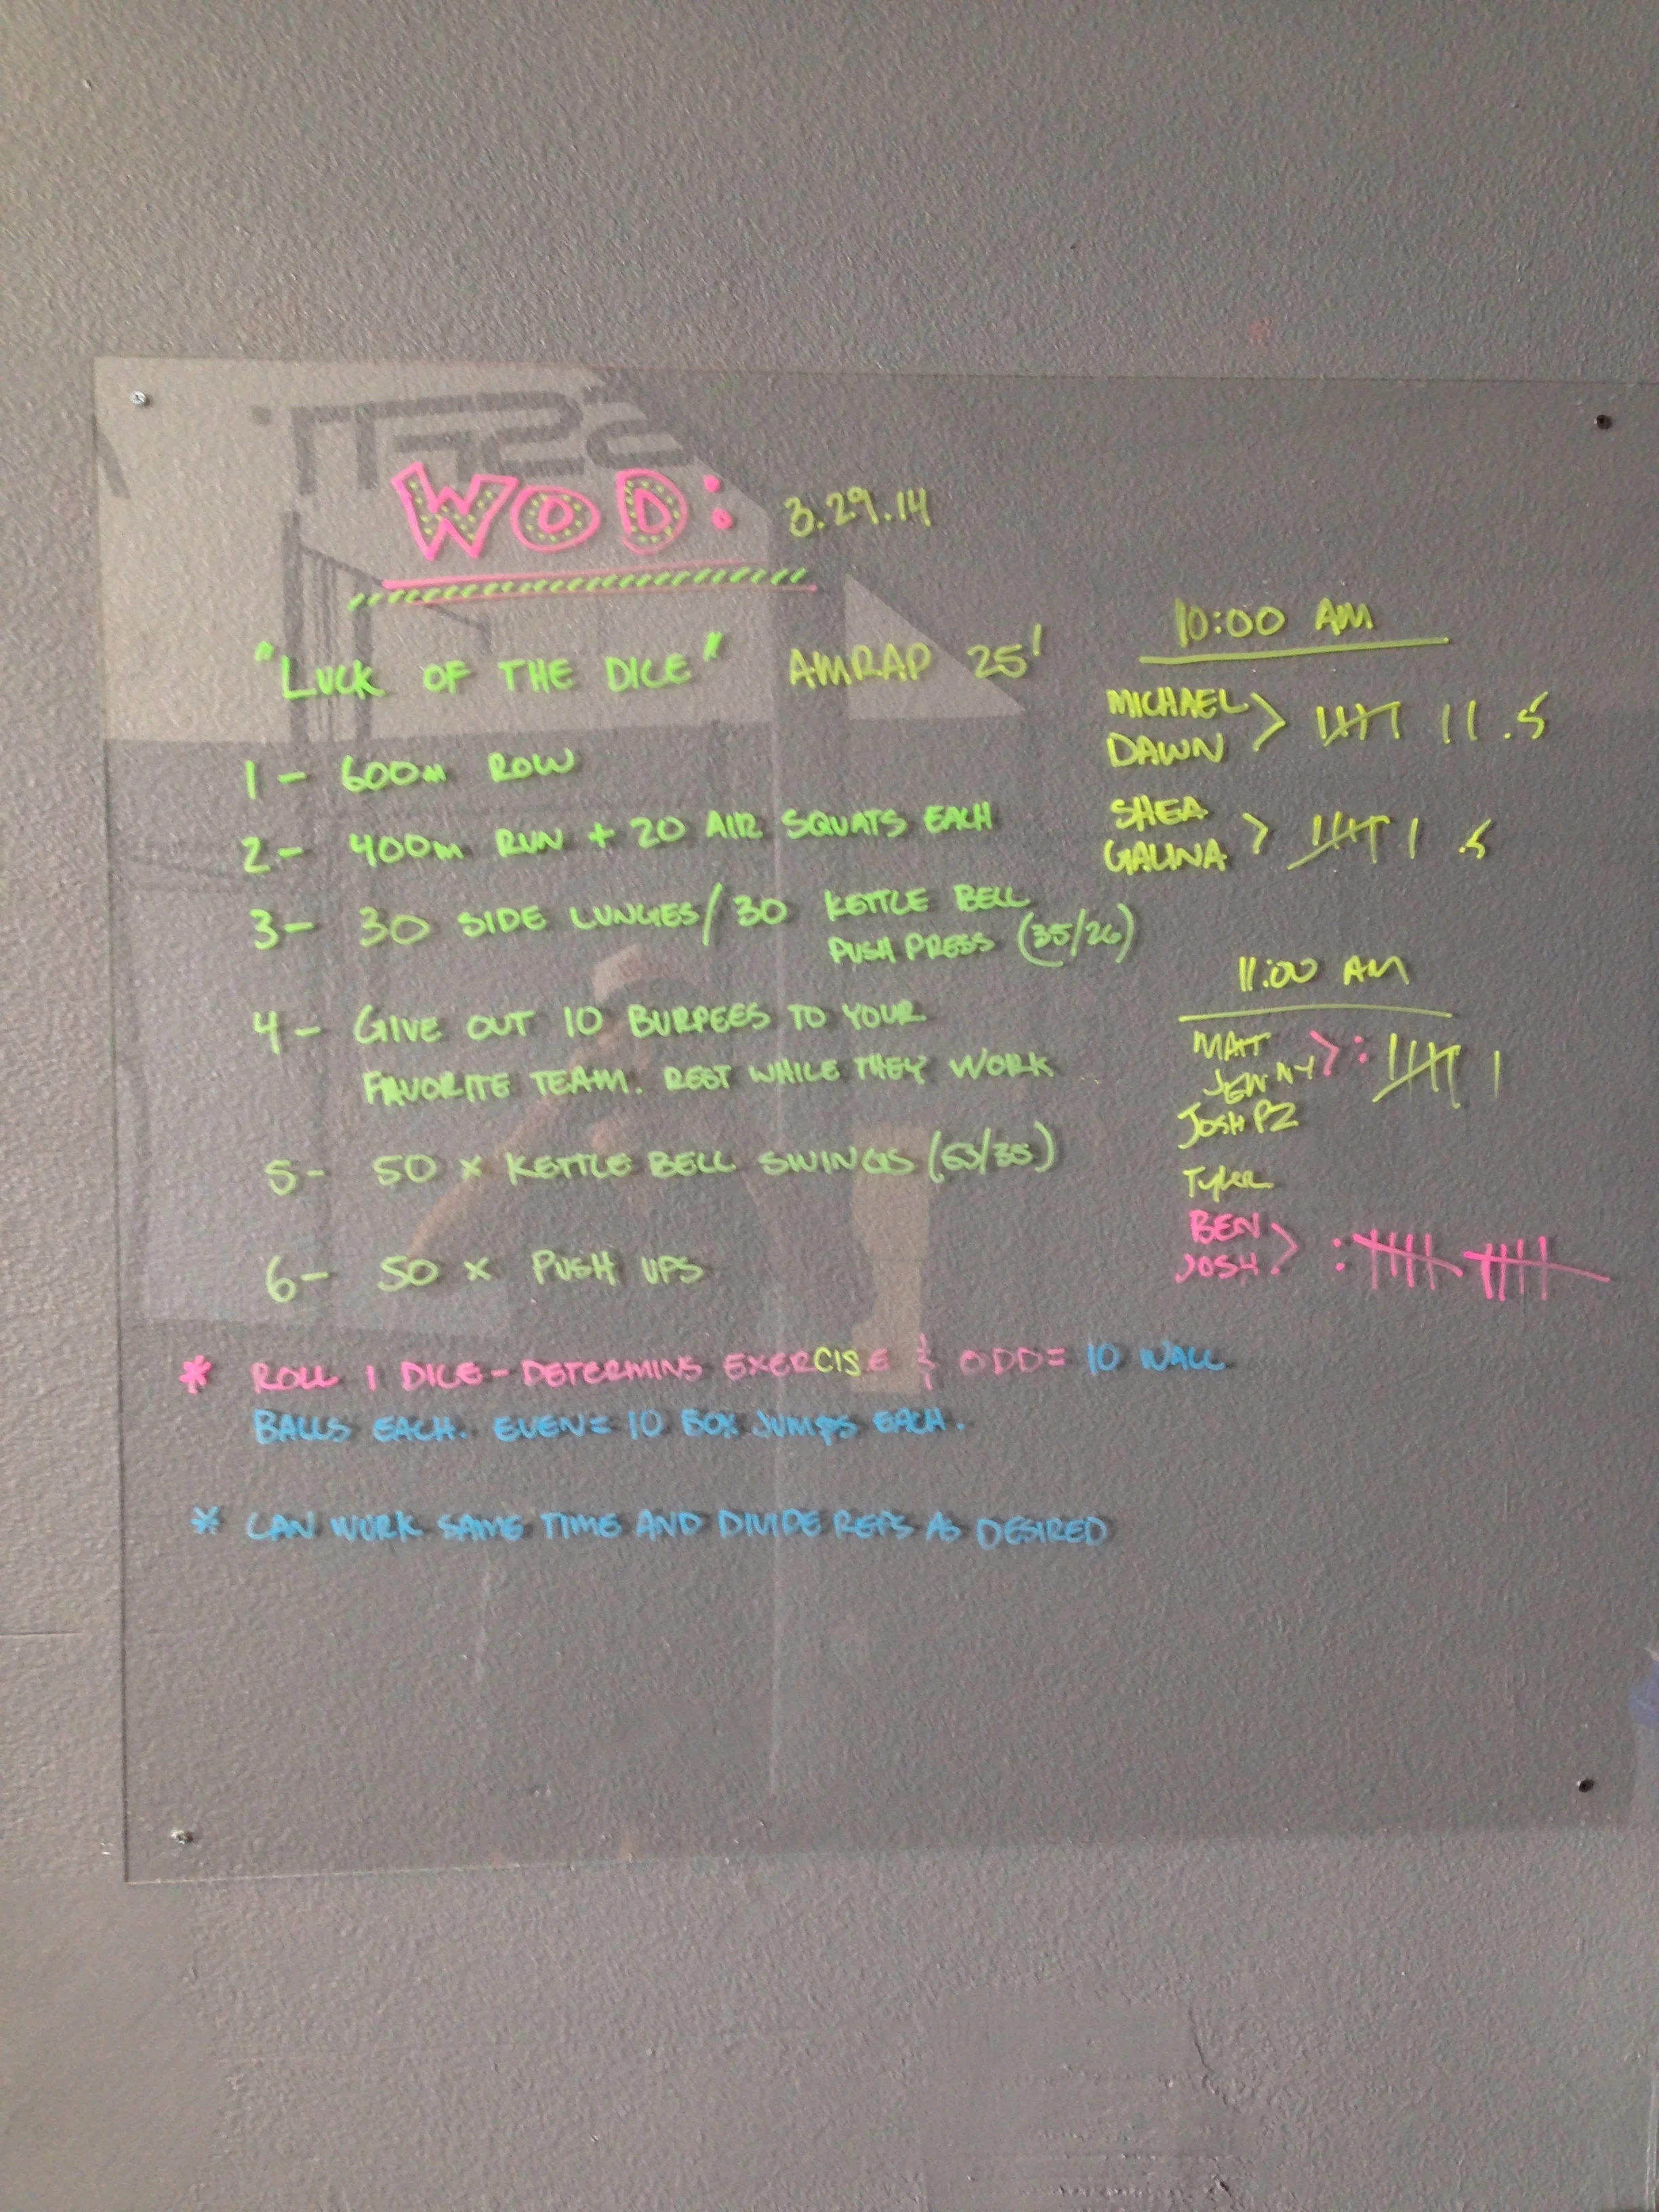 WOD: 3.29.14
"LUCK OF THE DICE" AMRAP 25'
1 - 600m ROW
2 - 400m RUN + 20 AIR SQUATS EACH
3 - 30 SIDE LUNGES/30 KETTLE BELL
PUSH PRESS (35/26)
4 - GIVE OUT 10 BURPEES TO YOUR
FAVORITE TEAM. REST WHILE THEY WORK
5 - 50 x KETTLE BELL SWINGS (53/35)
6 - 50 x PUSH UPS
* ROLL 1 DICE - DETERMINS EXERCISE & ODD = 10 WALL
BALLS EACH. EVEN = 10 BOX JUMPS EACH.
* CAN WORK SAME TIME AND DIVIDE REPS AS DESIRED
10:00 AM
MICHAEL
DAWN > |||| || .5
SHEA
GALINA > |||| | .5
11:00 AM
MATT
JENNY >: |||| |
JOSH PZ
Tyler
BEN
JOSH >: